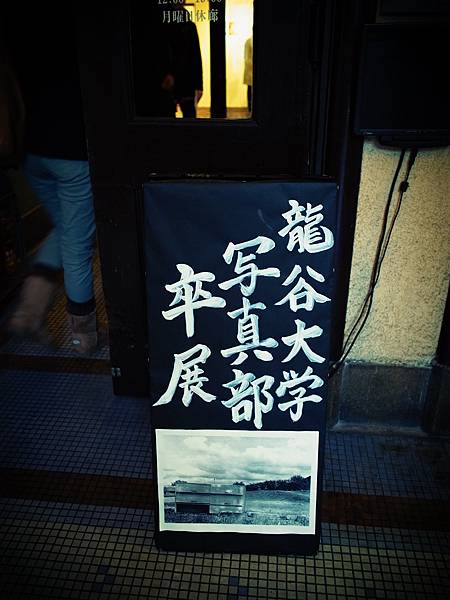 月曜日休廊
龍谷大学
写真部
卒展